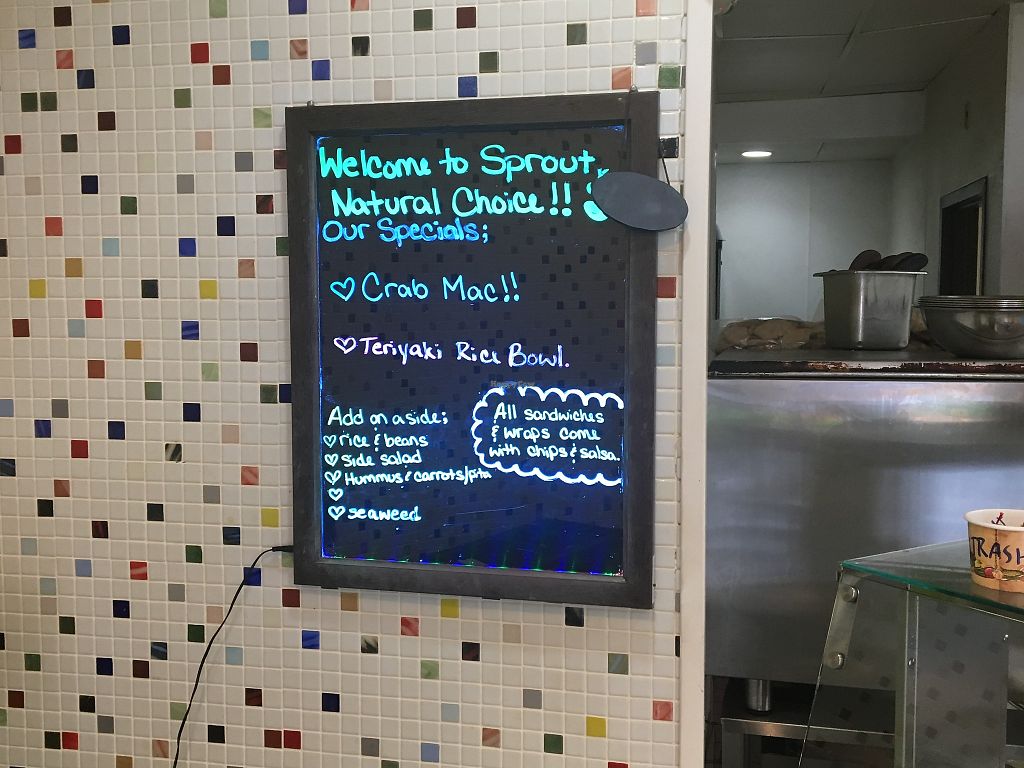 Welcome to Sprout,
Natural Choice!!
Our Specials;
♡ Crab Mac!!
♡ Teriyaki Rice Bowl.
Add on a side;
♡ rice & beans
♡ Side salad
♡ Hummus & carrots/pita
♡
♡ seaweed
All sandwiches
& wraps come
with chips & salsa.
HappyCow
TRASH